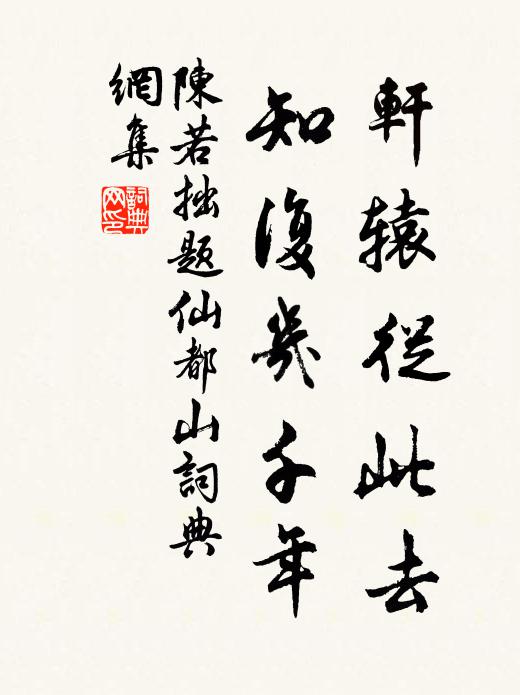 軒辕從此去
知復幾千年
陳若拙题仙都山詞典
網集
詞典
网印